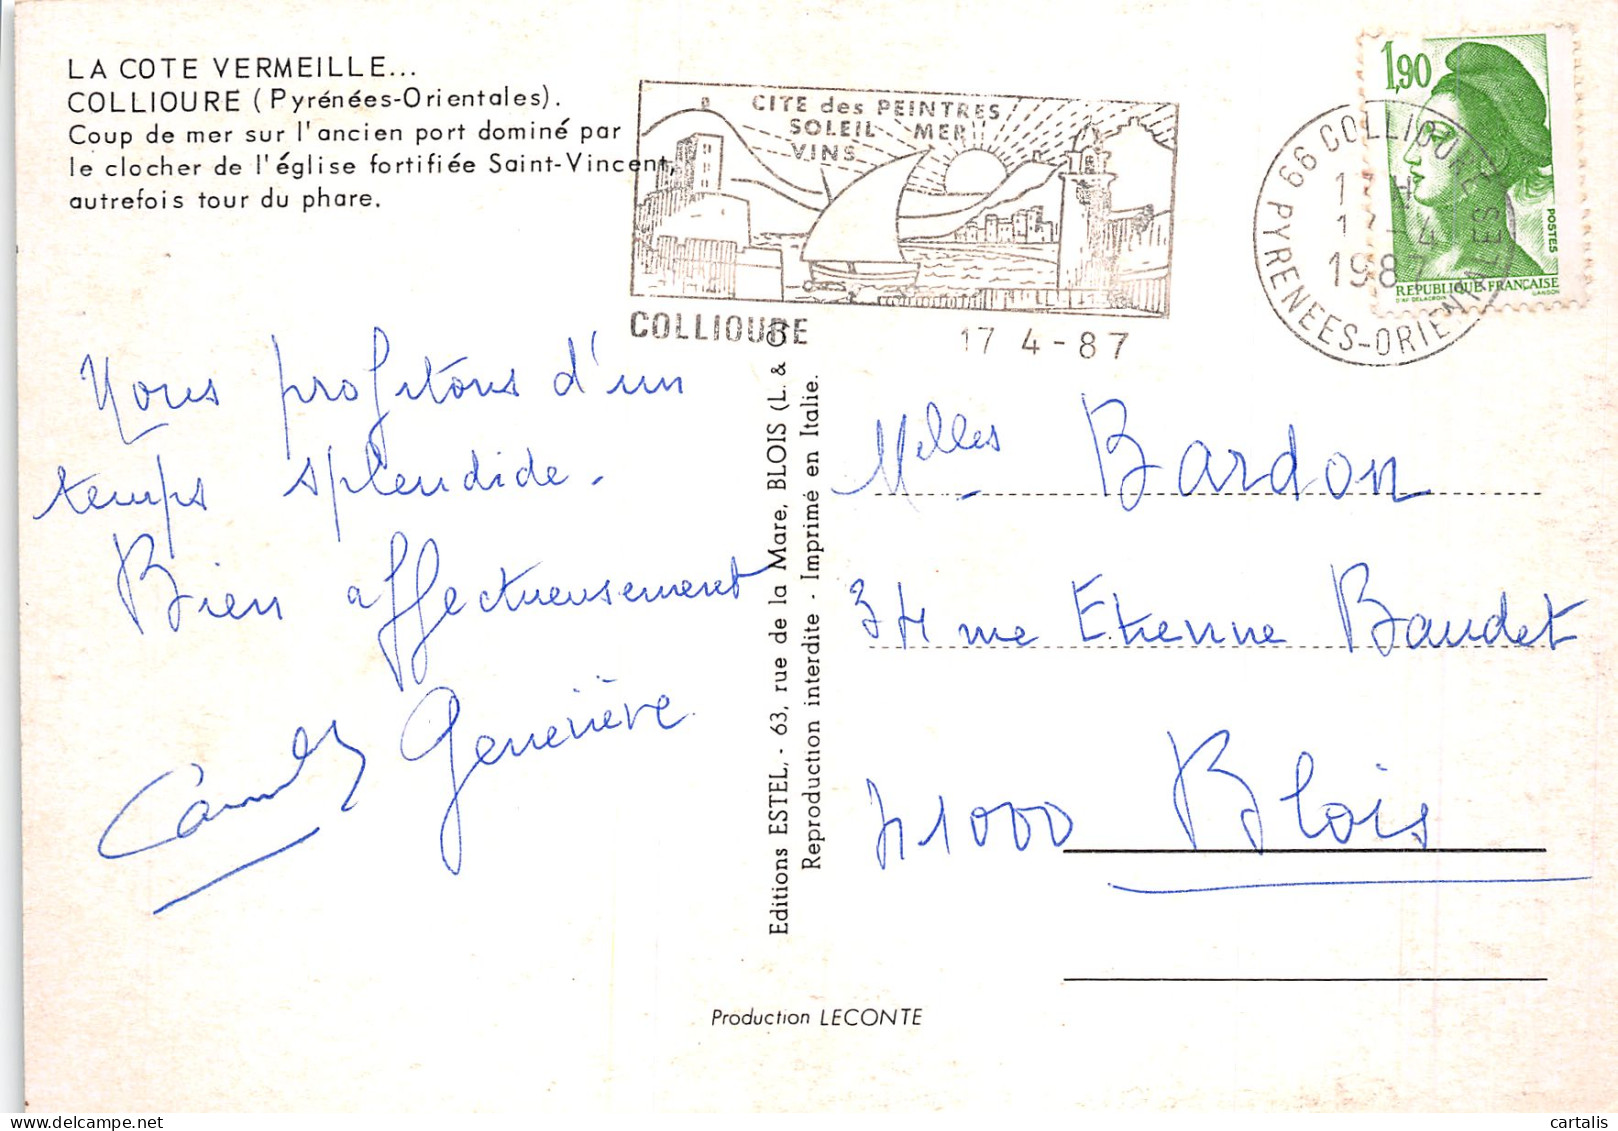 LA COTE VERMEILLE...
COLLIOURE (Pyrénées-Orientales).
Coup de mer sur l'ancien port dominé par
le clocher de l'église fortifiée Saint-Vincent,
autrefois tour du phare.
CITE des PEINTRES
SOLEIL MER
VINS
COLLIOURE
17 4-87
66 COLLIOURE
PYRENEES-ORIENTALES
17-4
1987
1,90
POSTES
REPUBLIQUE FRANÇAISE
D'AP. DELACROIX
GANDON
Nous profitons d'un
temps splendide.
Bien affectueusement
Geneviève
Editions ESTEL, - 63, rue de la Mare, BLOIS (L. & C)
Reproduction interdite - Imprimé en Italie.
Melles Bardon
34 rue Etienne Baudet
41000 Blois
Production LECONTE
cartalis